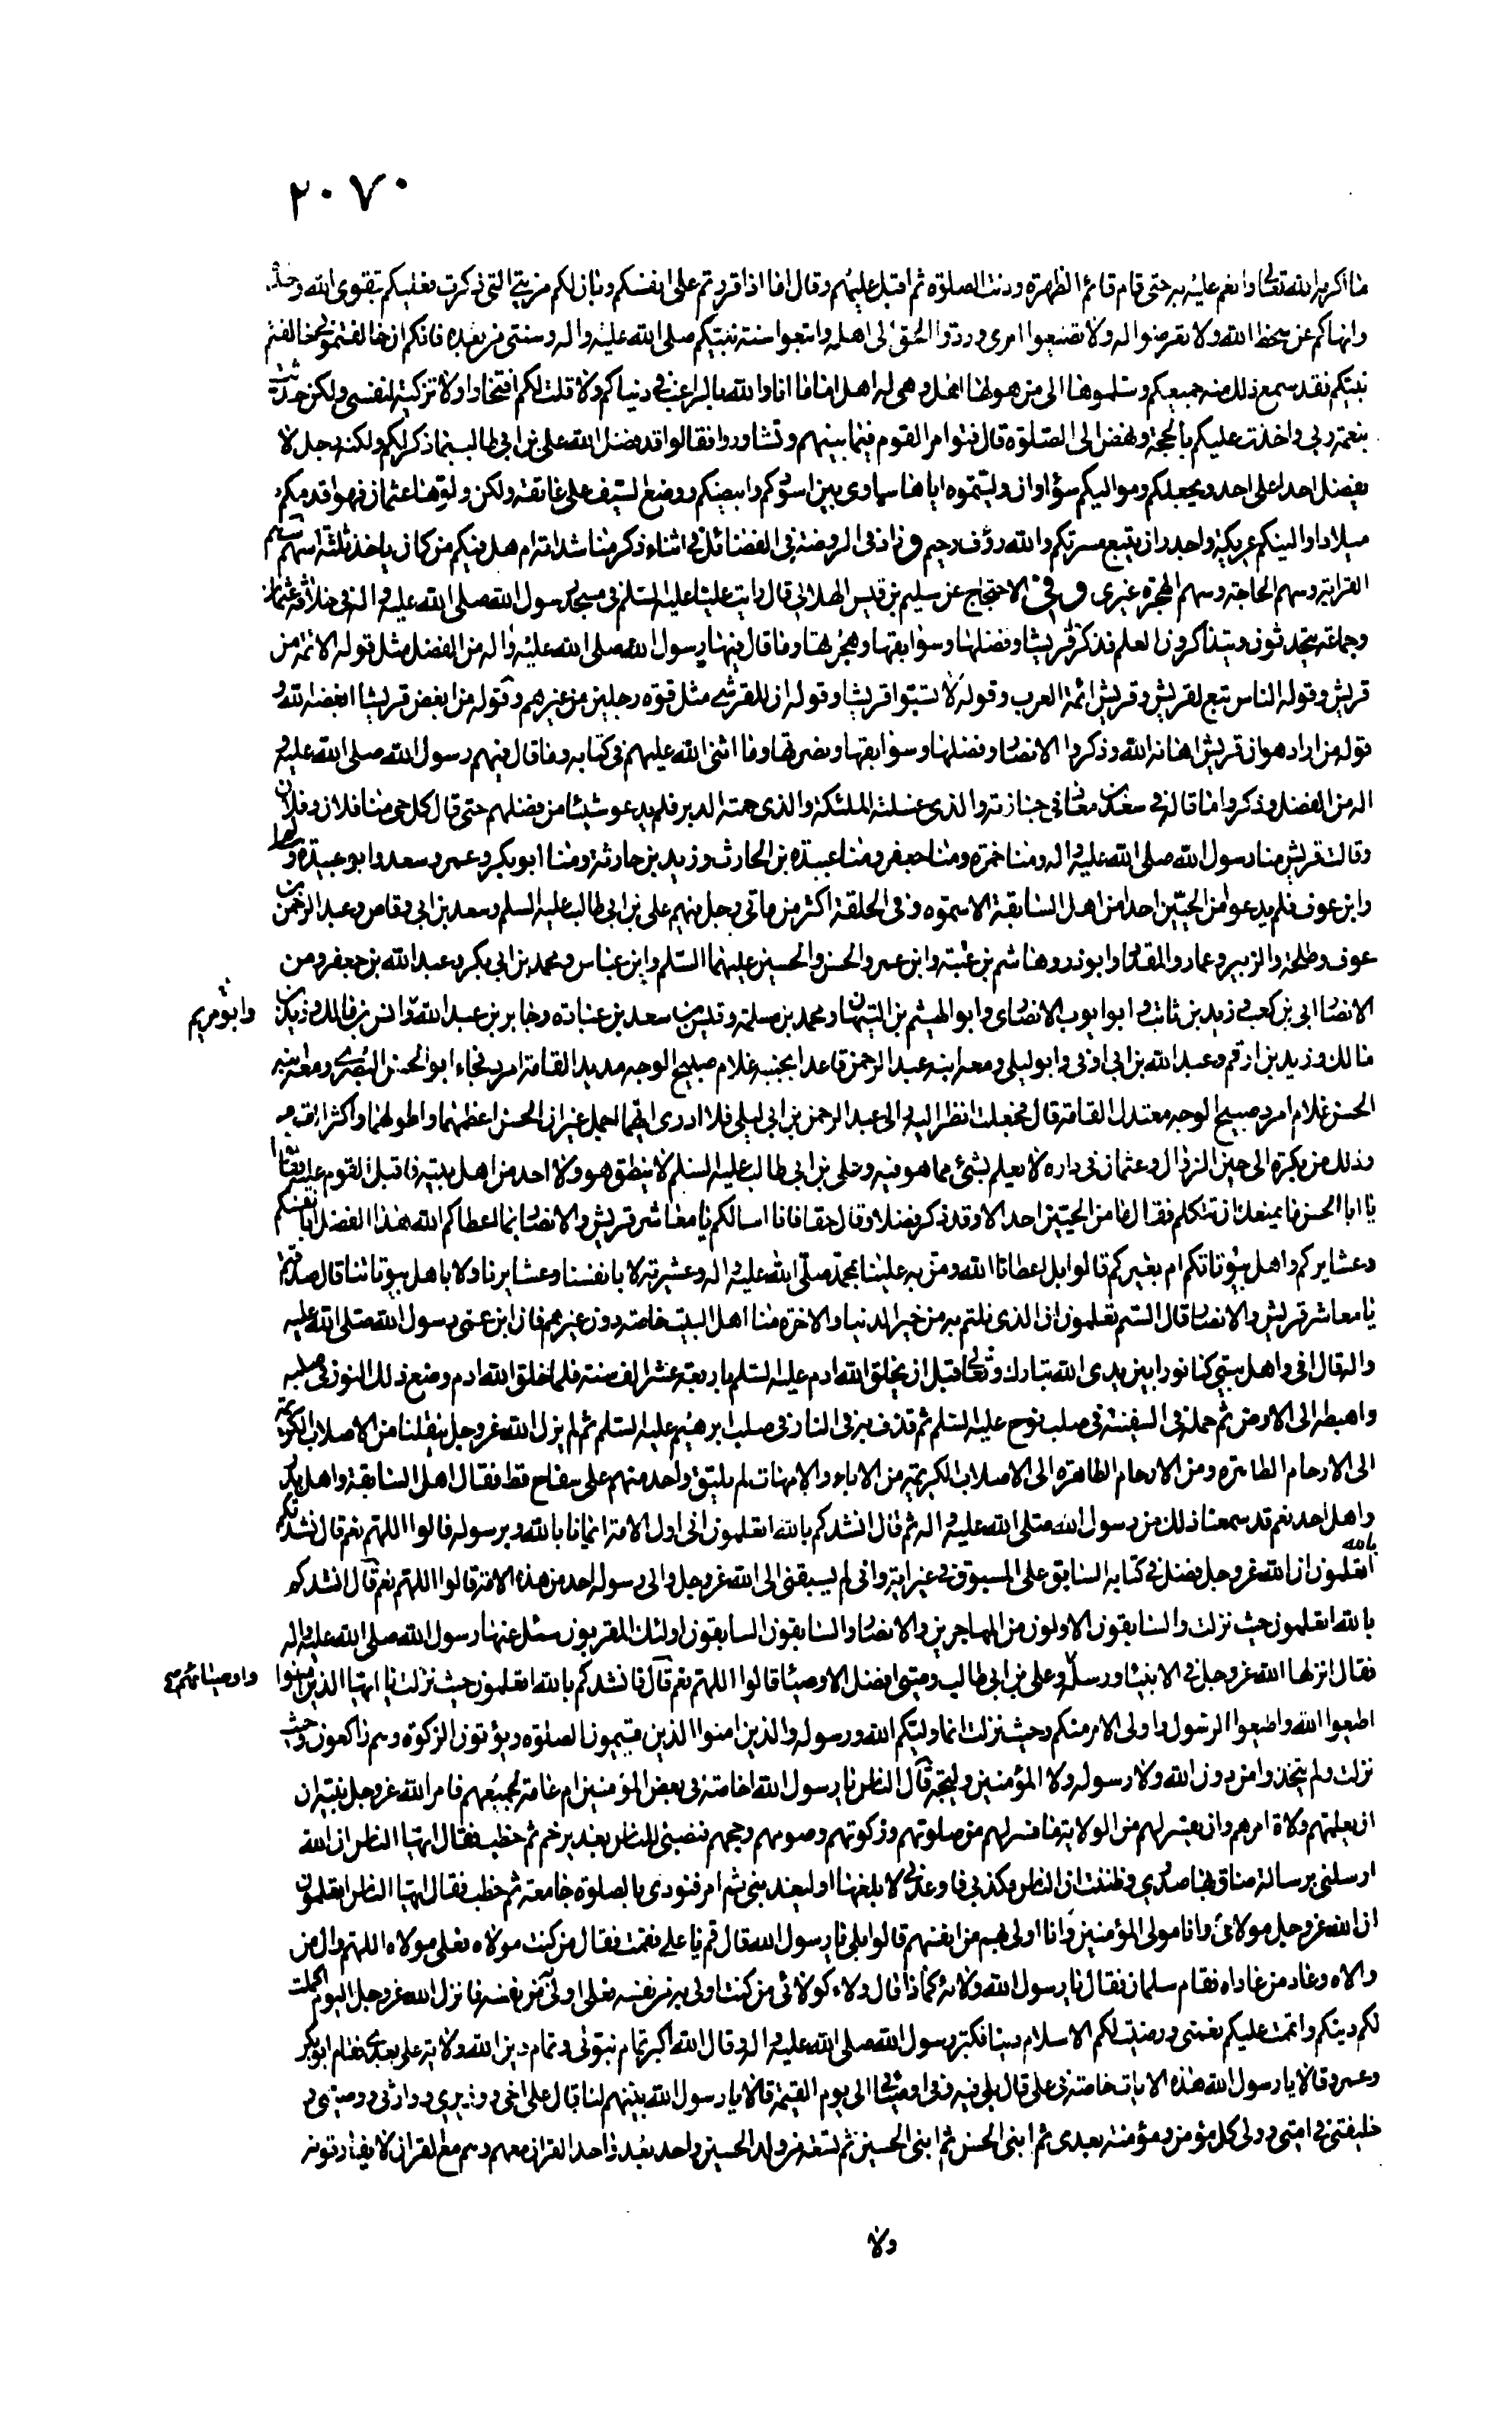 ٢٠٧٠
ما اكرمه الله تعالى وانعم عليه به حتى قام قائم الظهيرة ودنت الصلوة ثم اقبل عليهم وقال اما اذا اقررتم على انفسكم وبان لكم من سببي الذي ذكرت فعليكم بتقوى الله وحده
وانهاكم عن سخط الله ولا تعرضوا له ولا تضيعوا امري وردوا الحق الى اهله واتبعوا سنة نبيكم صلى الله عليه واله وسنتي من بعده فانكم ان خالفتموني خالفتم
نبيكم فقد سمع ذلك منه جميعكم وسلموها الى من هو لها اهل وهي له اهل اما انا والله ما بالراغب في دنياكم ولا قلت لكم افتخارا ولا تزكية لنفسي ولكن حدثت
بنعمة ربي واخذت عليكم بالحجة ونهض الى الصلوة قال فتوامر القوم فيما بينهم وتشاوروا فقالوا قد فضل الله علي بن ابي طالب بما ذكر لكم ولكنه رجل لا
يفضل احدا على احد ويجعلكم ومواليكم سواء وان وليتموه اياها ساوى بين اسودكم وابيضكم ووضع السيف على عاتقه ولكن ولوها عثمان فهو اقدمكم
ميلادا والينكم عريكة واجدر ان يتبع مسرتكم والله رؤف رحيم وزاد في الروضة في الفضائل في اثناء ذكر مناشداته ام هل فيكم من كان ياخذ ثلثة اسهم سهم
القرابة وسهم الخاصة وسهم الهجرة غيري وفي الاحتجاج عن سليم بن قيس الهلالي قال رايت عليا عليه السلم في مسجد رسول الله صلى الله عليه واله في خلافة عثمان
وجماعة يتحدثون ويتذاكرون العلم فذكر قريشا وفضلها وسوابقها وهجرتها وما قال فيها رسول الله صلى الله عليه واله من الفضل مثل قوله الائمة من
قريش وقوله الناس تبع لقريش وقريش ائمة العرب وقوله لا تسبوا قريشا وقوله ان للقرشي مثل قوة رجلين من غيرهم وقوله من ابغض قريشا ابغضه الله و
قوله من اراد هوان قريش اهانه الله وذكروا الانصار وفضلها وسوابقها ونصرتها وما اثنى الله عليهم في كتابه وما قال فيهم رسول الله صلى الله عليه و
اله من الفضل وذكروا ما قاله في سعد بن معاذ في جنازته والذي غسلته الملئكة والذي حمته الدبر فلم يدعو شيئا من فضلهم حتى قال كل حي منا فلان وفلان
وقالت قريش منا رسول الله صلى الله عليه واله ومنا حمزة ومنا جعفر ومنا عبيدة بن الحارث وزيد بن حارثة ومنا ابو بكر وعمر وسعد وابو عبيدة وسالم
وابن عوف فلم يدعوا من الحيين احدا من اهل السابقة الا سموه وفي الحلقة اكثر من ماتي رجل منهم علي بن ابي طالب عليه السلم وسعد بن ابي وقاص وعبد الرحمن بن
عوف وطلحة والزبير وعمار والمقداد وابو ذر وهاشم بن عتبة وابن عمر والحسن والحسين عليهما السلم وابن عباس ومحمد بن ابي بكر وعبد الله بن جعفر ومن
الانصار ابي بن كعب وزيد بن ثابت وابو ايوب الانصاري وابو الهيثم بن التيهان ومحمد بن مسلمة وقيس بن سعد بن عبادة وجابر بن عبد الله وانس بن مالك وزيد بن
وابو مريم
مالك وزيد بن ارقم وعبد الله بن ابي اوفى وابو ليلى ومعه ابنه عبد الرحمن قاعدا بجنبه غلام صبيح الوجه مديد القامة امرد فجاء ابو الحسن البصري ومعه ابنه
الحسن غلام امرد صبيح الوجه معتدل القامة قال فجعلت انظر اليه والى عبد الرحمن بن ابي ليلى فلا ادري ايهما اجمل غير ان الحسن اعظمهما واطولهما واكثر القوم
وذلك من بكرة الى حين الزوال وعثمان في داره لا يعلم بشئ مما هو فيه وعلي بن ابي طالب عليه السلم لا ينطق هو ولا احد من اهل بيته فاقبل القوم عليه فقالوا
يا ابا الحسن ما يمنعك ان تتكلم فقال ما من الحيين احد الا وقد ذكر فضلا وقال حقا فانا اسالكم يا معاشر قريش والانصار بما اعطاكم الله هذا الفضل ابانفسكم
وعشايركم واهل بيوتاتكم ام بغيركم قالوا بل اعطانا الله ومن به علينا بمحمد صلى الله عليه واله وعشيرته لا بانفسنا وعشايرنا ولا باهل بيوتاتنا قال صدقتم
يا معاشر قريش والانصار قال الستم تعلمون ان الذي نلتم به من خير الدنيا والاخرة منا اهل البيت خاصة دون غيرهم فان ابن عمي رسول الله صلى الله عليه
واله قال اني واهل بيتي كنا نورا بين يدى الله تبارك وتعالى قبل ان يخلق الله ادم عليه السلم باربعة عشر الف سنة فلما خلق الله ادم وضع ذلك النور في صلبه
واهبطه الى الارض ثم حمله في السفينة في صلب نوح عليه السلم ثم قذف به في النار في صلب ابرهيم عليه السلم ثم لم يزل الله عز وجل ينقلنا من الاصلاب الكريمة
الى الارحام الطاهرة ومن الارحام الطاهرة الى الاصلاب الكريمة من الاباء والامهات لم يلتق واحد منهم على سفاح قط فقال اهل السابقة واهل بدر
واهل احد نعم قد سمعنا ذلك من رسول الله صلى الله عليه واله ثم قال انشدكم بالله اتعلمون اني اول الامة ايمانا بالله وبرسوله قالوا اللهم نعم قال نشدتكم
بالله
اتعلمون ان الله عز وجل فضل في كتابه السابق على المسبوق في غير اية واني لم يسبقني الى الله عز وجل والى رسوله احد من هذه الامة قالوا اللهم نعم قال انشدكم
بالله اتعلمون حيث نزلت والسابقون الاولون من المهاجرين والانصار والسابقون السابقون اولئك المقربون سئل عنها رسول الله صلى الله عليه واله
فقال انزلها الله عز وجل في الانبياء ورسله وعلي بن ابي طالب وصيي افضل الاوصياء قالوا اللهم نعم قال فانشدكم بالله اتعلمون حيث نزلت يا ايها الذين امنوا
واوصيائهم صح
اطيعوا الله واطيعوا الرسول واولى الامر منكم وحيث نزلت انما وليكم الله ورسوله والذين امنوا الذين يقيمون الصلوة ويؤتون الزكوة وهم راكعون وحيث
نزلت ولم يتخذوا من دون الله ولا رسوله ولا المؤمنين وليجة قال الناس يا رسول الله اخاصة في بعض المؤمنين ام عامة لجميعهم فامر الله عز وجل نبيه ان
ان يعلمهم ولاة امرهم وان يفسر لهم من الولاية ما فسر لهم من صلوتهم وزكوتهم وصومهم وحجهم فنصبني للناس بغدير خم ثم خطب فقال ايها الناس ان الله
ارسلني برسالة ضاق بها صدري وظننت ان الناس مكذبي فاوعدني لابلغها او ليعذبني ثم امر فنودى بالصلوة جامعة ثم خطب فقال ايها الناس اتعلمون
ان الله عز وجل مولاي وانا مولى المؤمنين وانا اولى بهم من انفسهم قالوا بلى يا رسول الله قال قم يا علي فقمت فقال من كنت مولاه فعلي مولاه اللهم وال من
والاه وعاد من عاداه فقام سلمان فقال يا رسول الله ولاؤه كماذا قال ولاء كولائي من كنت اولى به من نفسه فعلي اولى به من نفسه فانزل الله عز وجل اليوم اكملت
لكم دينكم واتممت عليكم نعمتي ورضيت لكم الاسلام دينا فكبر رسول الله صلى الله عليه واله وقال الله اكبر تمام نبوتي وتمام دين الله ولاية علي بعدي فقام ابو بكر
وعمر وقالا يا رسول الله هذه الايات خاصة في علي قال بلى فيه وفي اوصيائي الى يوم القيمة قالا يا رسول الله بينهم لنا قال علي اخي ووزيري ووارثي ووصيي و
خليفتي في امتي وولي كل مؤمن ومؤمنة بعدى ثم ابني الحسن ثم ابني الحسين ثم تسعة من ولد الحسين واحد بعد واحد القران معهم وهم مع القران لا يفارقونه
ولا